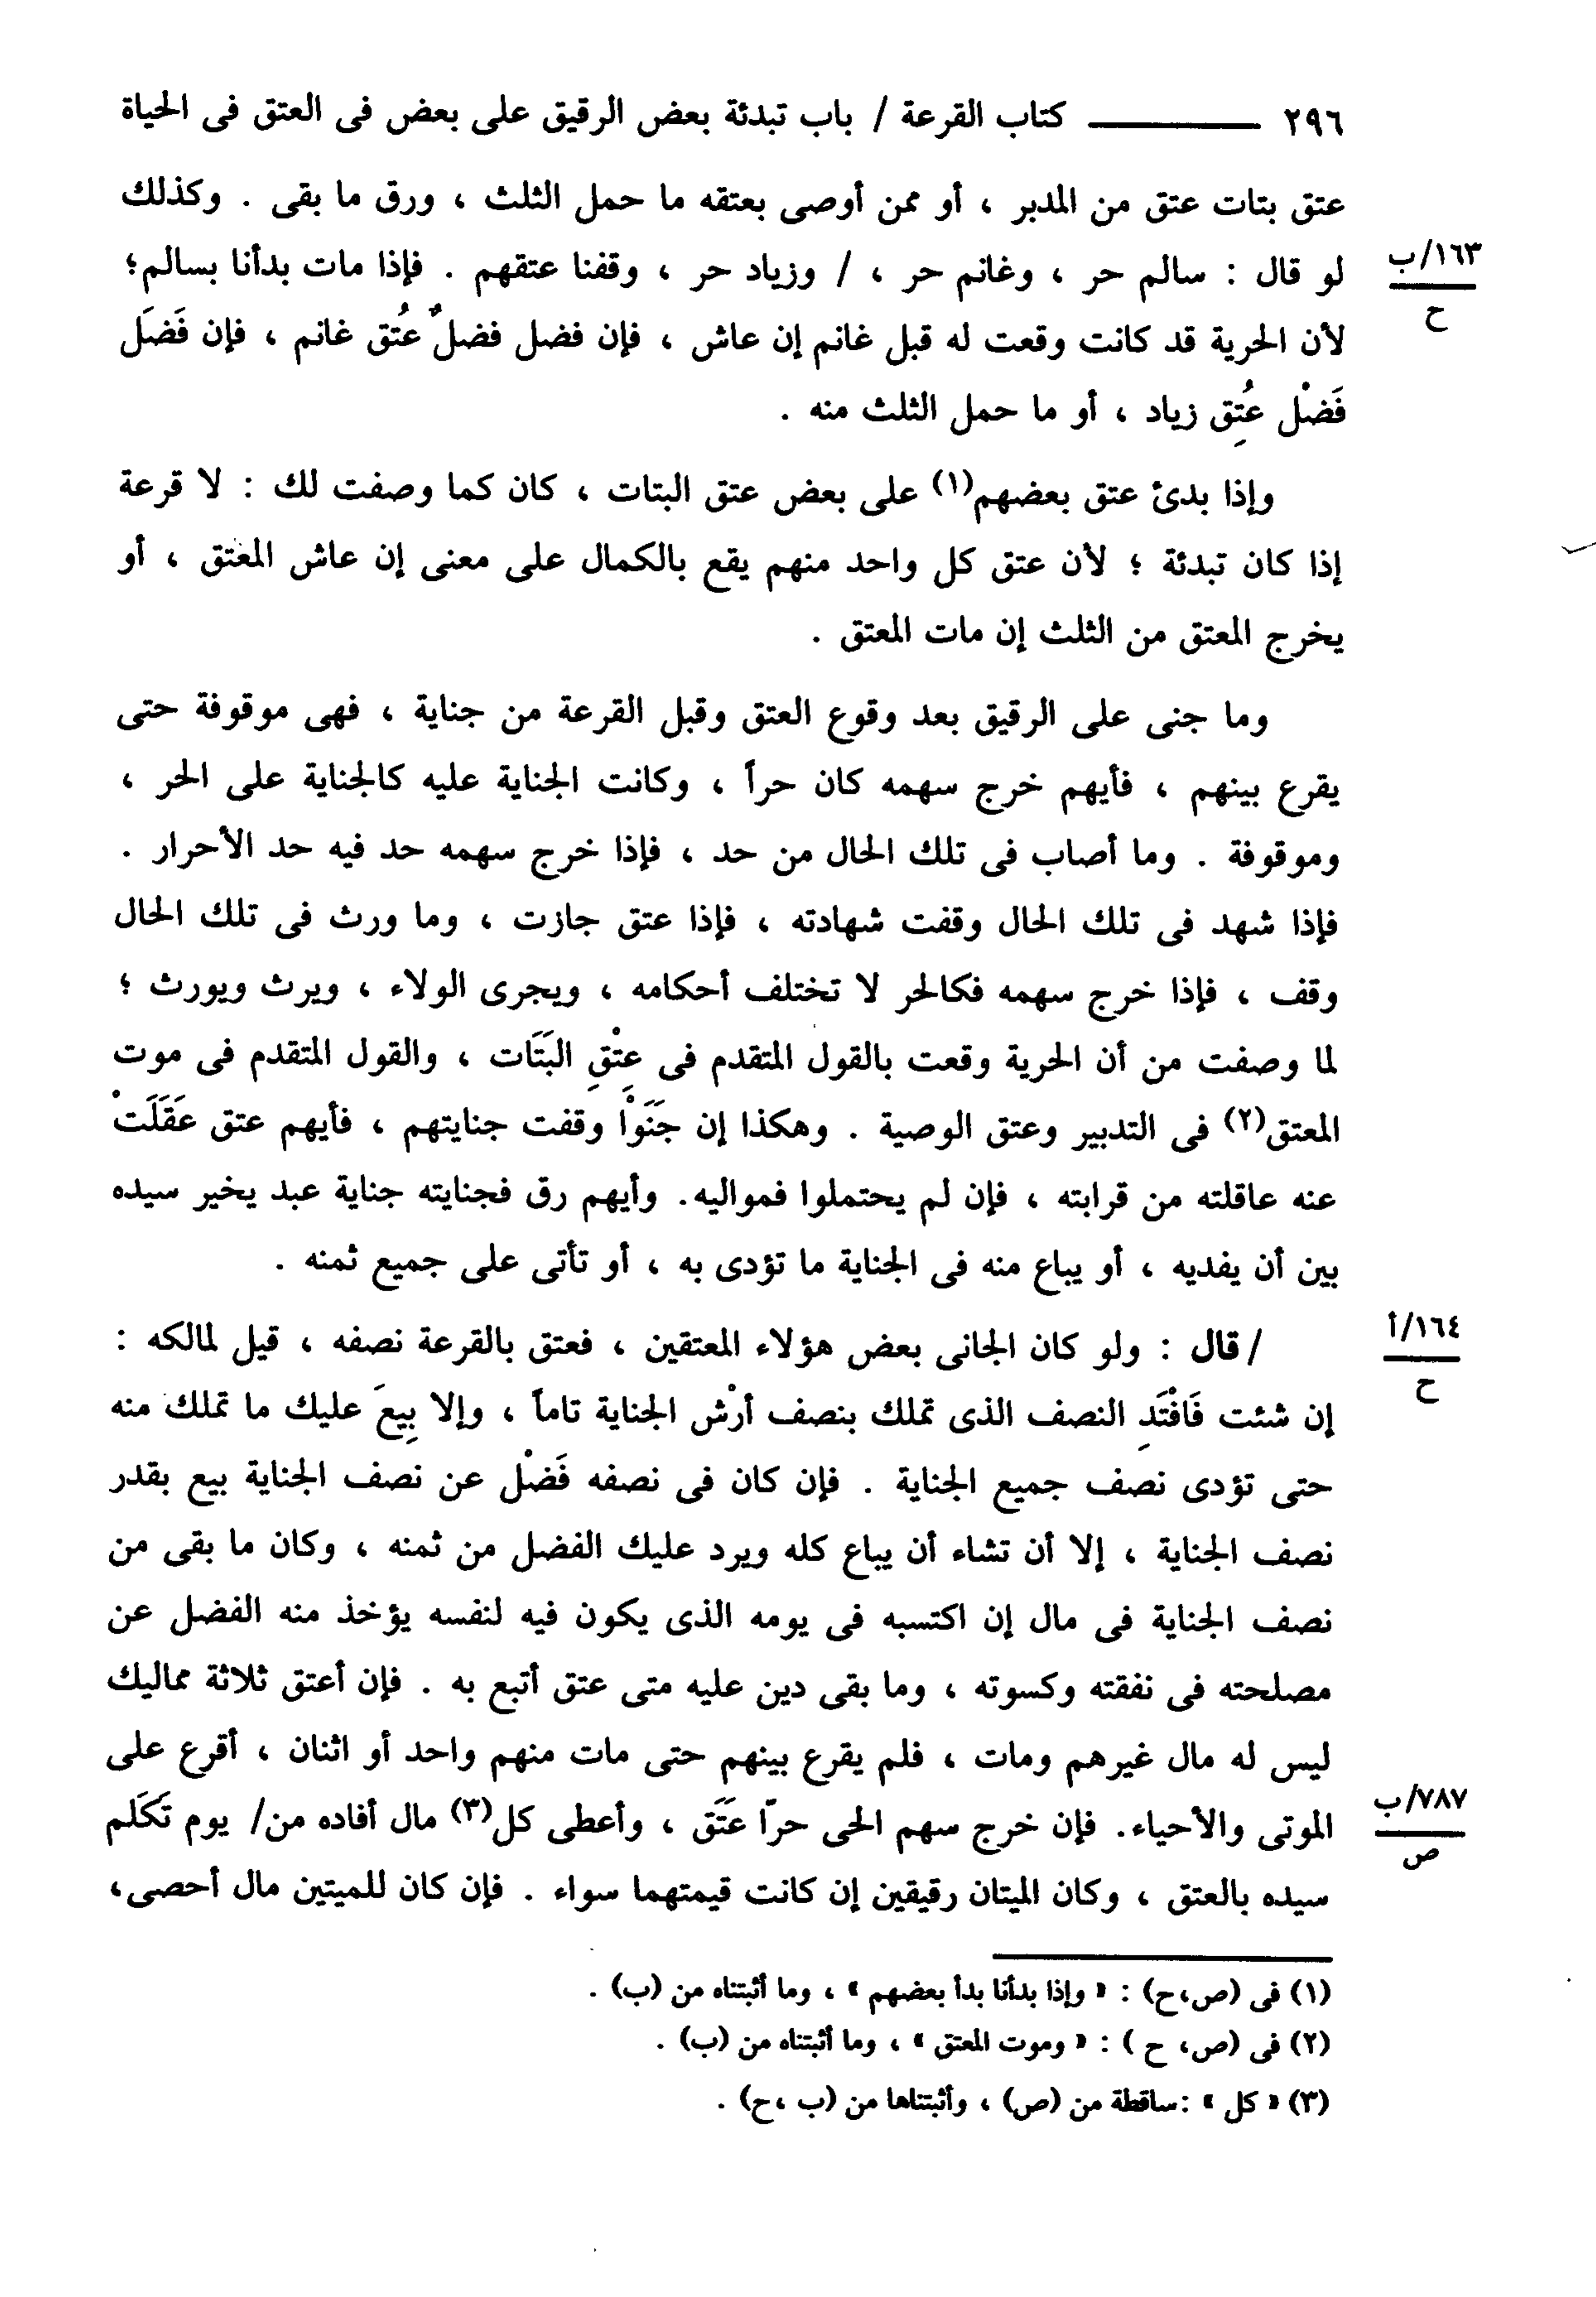 ٢٩٦ ——— كتاب القرعة / باب تبدئة بعض الرقيق على بعض فى العتق فى الحياة
عتق بتات عتق من المدبر ، أو ممن أوصى بعتقه ما حمل الثلث ، ورق ما بقى . وكذلك
١٦٣/ب
لو قال : سالم حر ، وغانم حر ، / وزياد حر ، وقفنا عتقهم . فإذا مات بدأنا بسالم؛
ح
لأن الحرية قد كانت وقعت له قبل غانم إن عاش ، فإن فضل فضلٌ عُتق غانم ، فإن فَضَل
فَضْل عُتِق زياد ، أو ما حمل الثلث منه .
وإذا بدئ عتق بعضهم(١) على بعض عتق البتات ، كان كما وصفت لك : لا قرعة
إذا كان تبدئة ؛ لأن عتق كل واحد منهم يقع بالكمال على معنى إن عاش المعتق ، أو
يخرج المعتق من الثلث إن مات المعتق .
وما جنى على الرقيق بعد وقوع العتق وقبل القرعة من جناية ، فهى موقوفة حتى
يقرع بينهم ، فأيهم خرج سهمه كان حراً ، وكانت الجناية عليه كالجناية على الحر ،
وموقوفة . وما أصاب فى تلك الحال من حد ، فإذا خرج سهمه حد فيه حد الأحرار .
فإذا شهد فى تلك الحال وقفت شهادته ، فإذا عتق جازت ، وما ورث فى تلك الحال
وقف ، فإذا خرج سهمه فكالحر لا تختلف أحكامه ، ويجرى الولاء ، ويرث ويورث ؛
لما وصفت من أن الحرية وقعت بالقول المتقدم فى عِتْقِ البَتَات ، والقول المتقدم فى موت
المعتق(٢) فى التدبير وعتق الوصية . وهكذا إن جَنَوْا وقفت جنايتهم ، فأيهم عتق عَقَلَتْ
عنه عاقلته من قرابته ، فإن لم يحتملوا فمواليه. وأيهم رق فجنايته جناية عبد يخير سيده
بين أن يفديه ، أو يباع منه فى الجناية ما تؤدى به ، أو تأتى على جميع ثمنه .
١٦٤/أ
/ قال : ولو كان الجانى بعض هؤلاء المعتقين ، فعتق بالقرعة نصفه ، قيل لمالكه :
ح
إن شئت فَافْتَدِ النصف الذى تملك بنصف أرْش الجناية تاماً ، وإلا بِيعَ عليك ما تملك منه
حتى تؤدى نصف جميع الجناية . فإن كان فى نصفه فَضْل عن نصف الجناية بيع بقدر
نصف الجناية ، إلا أن تشاء أن يباع كله ويرد عليك الفضل من ثمنه ، وكان ما بقى من
نصف الجناية فى مال إن اكتسبه فى يومه الذى يكون فيه لنفسه يؤخذ منه الفضل عن
مصلحته فى نفقته وكسوته ، وما بقى دين عليه متى عتق أتبع به . فإن أعتق ثلاثة مماليك
ليس له مال غيرهم ومات ، فلم يقرع بينهم حتى مات منهم واحد أو اثنان ، أقرع على
٧٨٧/ب
الموتى والأحياء. فإن خرج سهم الحى حرّا عَتَق ، وأعطى كل(٣) مال أفاده من/ يوم تَكَلم
ص
سيده بالعتق ، وكان الميتان رقيقين إن كانت قيمتهما سواء . فإن كان للميتين مال أحصى،
(١) فى (ص،ح) : « وإذا بدأنا بدأ بعضهم » ، وما أثبتناه من (ب) .
(٢) فى (ص، ح ) : « وموت المعتق » ، وما أثبتناه من (ب) .
(٣) « كل » :ساقطة من (ص) ، وأثبتناها من (ب ،ح) .